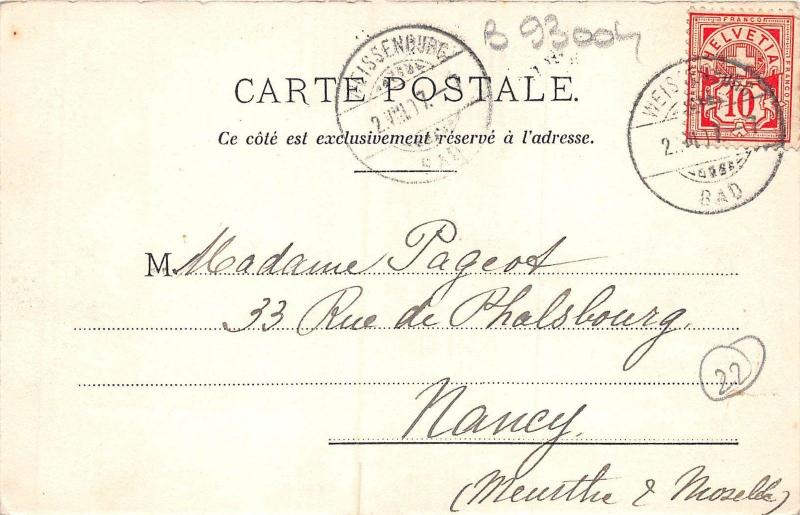 B 93004
FRANCO
HELVETIA
10
WEISSENBURG
BAD
WEISSENBURG
BAD
CARTE POSTALE.
Ce côté est exclusivement réservé à l'adresse.
M. Madame Pageot
33 Rue de Phalsbourg.
22
Nancy.
(Meurthe & Moselle)